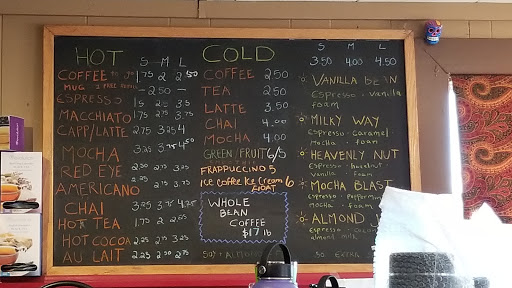 HOT S M L
COFFEE 1.75 2 2.50
MUG 2.50
ESPRESSO
MACCHIATO 1.75 2.75 3.75
CAPP/LATTE 2.75 3.25 4
MOCHA 3.25 3.75 4.50
RED EYE 2.50 2.75 3.25
AMERICANO 2.25 2.75 3.75
CHAI 3.25 3.75 4.25
HOT TEA 1.75 2 2.25
HOT COCOA 2.25 2.75 3.25
AU LAIT 2.25 2.50 2.75
COLD
COFFEE 2.50
TEA 2.50
LATTE 3.50
CHAI 4.00
MOCHA 4.00
GREEN/FRUIT 6/5
FRAPPUCCINO 5
ICE COFFEE ICE CREAM 6
FLOAT
WHOLE
BEAN
COFFEE
$17 lb
SOY + ALMOND
S M L
3.50 4.00 4.50
VANILLA BEAN
ESPRESSO . VANILLA
FOAM
MILKY WAY
ESPRESSO . CARAMEL .
MOCHA . FOAM
HEAVENLY NUT
ESPRESSO . HAZELNUT .
VANILLA . FOAM
MOCHA BLAST
ESPRESSO . PEPPERMINT
MOCHA . FOAM
ALMOND
ESPRESSO .
ALMOND MILK
.50 EXTRA